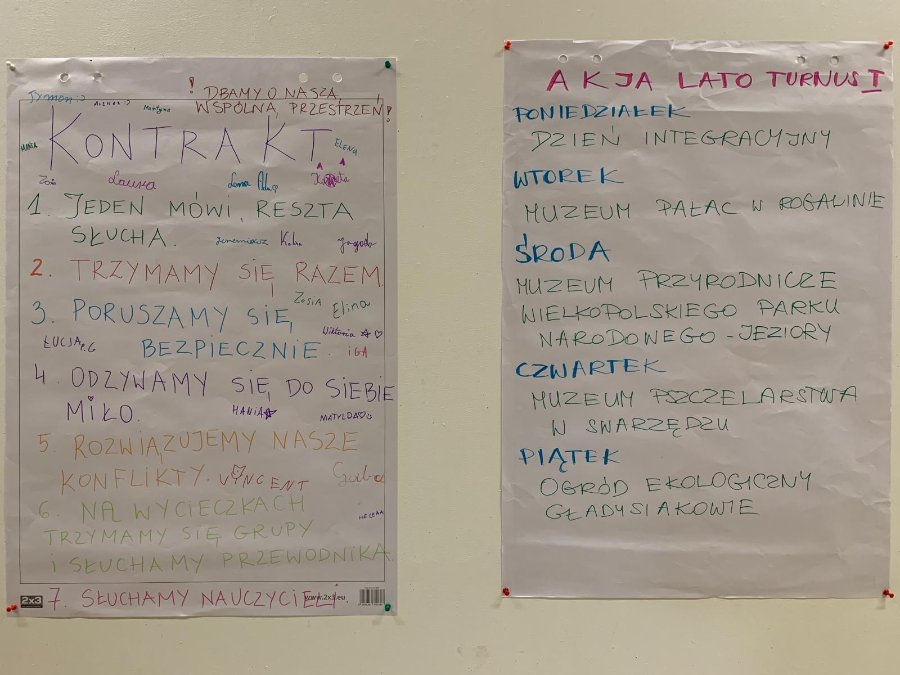 ! DBAMY O NASZĄ
WSPÓLNĄ PRZESTRZEŃ!
Tymon :)
Martyna
MARIA
KONTRAKT
ELENA
Zoja
Laura
Lena
1. JEDEN MÓWI, RESZTA
SŁUCHA.
Kuba
Jagoda
2. TRZYMAMY SIĘ RAZEM.
ZOSIA
Elina
3. PORUSZAMY SIĘ
Wiktoria
ŁUCJA
BEZPIECZNIE.
IGA
4. ODZYWAMY SIĘ DO SIEBIE
MIŁO.
HANIA
MATYLDA
5. ROZWIĄZUJEMY NASZE
KONFLIKTY.
VINCENT
Gaba
6. NA WYCIECZKACH
HELENA
TRZYMAMY SIĘ GRUPY
I SŁUCHAMY PRZEWODNIKA.
2x3
7. SŁUCHAMY NAUCZYCIELI.
www.2x3.eu
AKJA LATO TURNUS I
PONIEDZIAŁEK
DZIEŃ INTEGRACYJNY
WTOREK
MUZEUM PAŁAC W ROGALINIE
ŚRODA
MUZEUM PRZYRODNICZE
WIELKOPOLSKIEGO PARKU
NARODOWEGO - JEZIORY
CZWARTEK
MUZEUM PSZCZELARSTWA
W SWARZĘDZU
PIĄTEK
OGRÓD EKOLOGICZNY
GŁADYSIAKOWIE